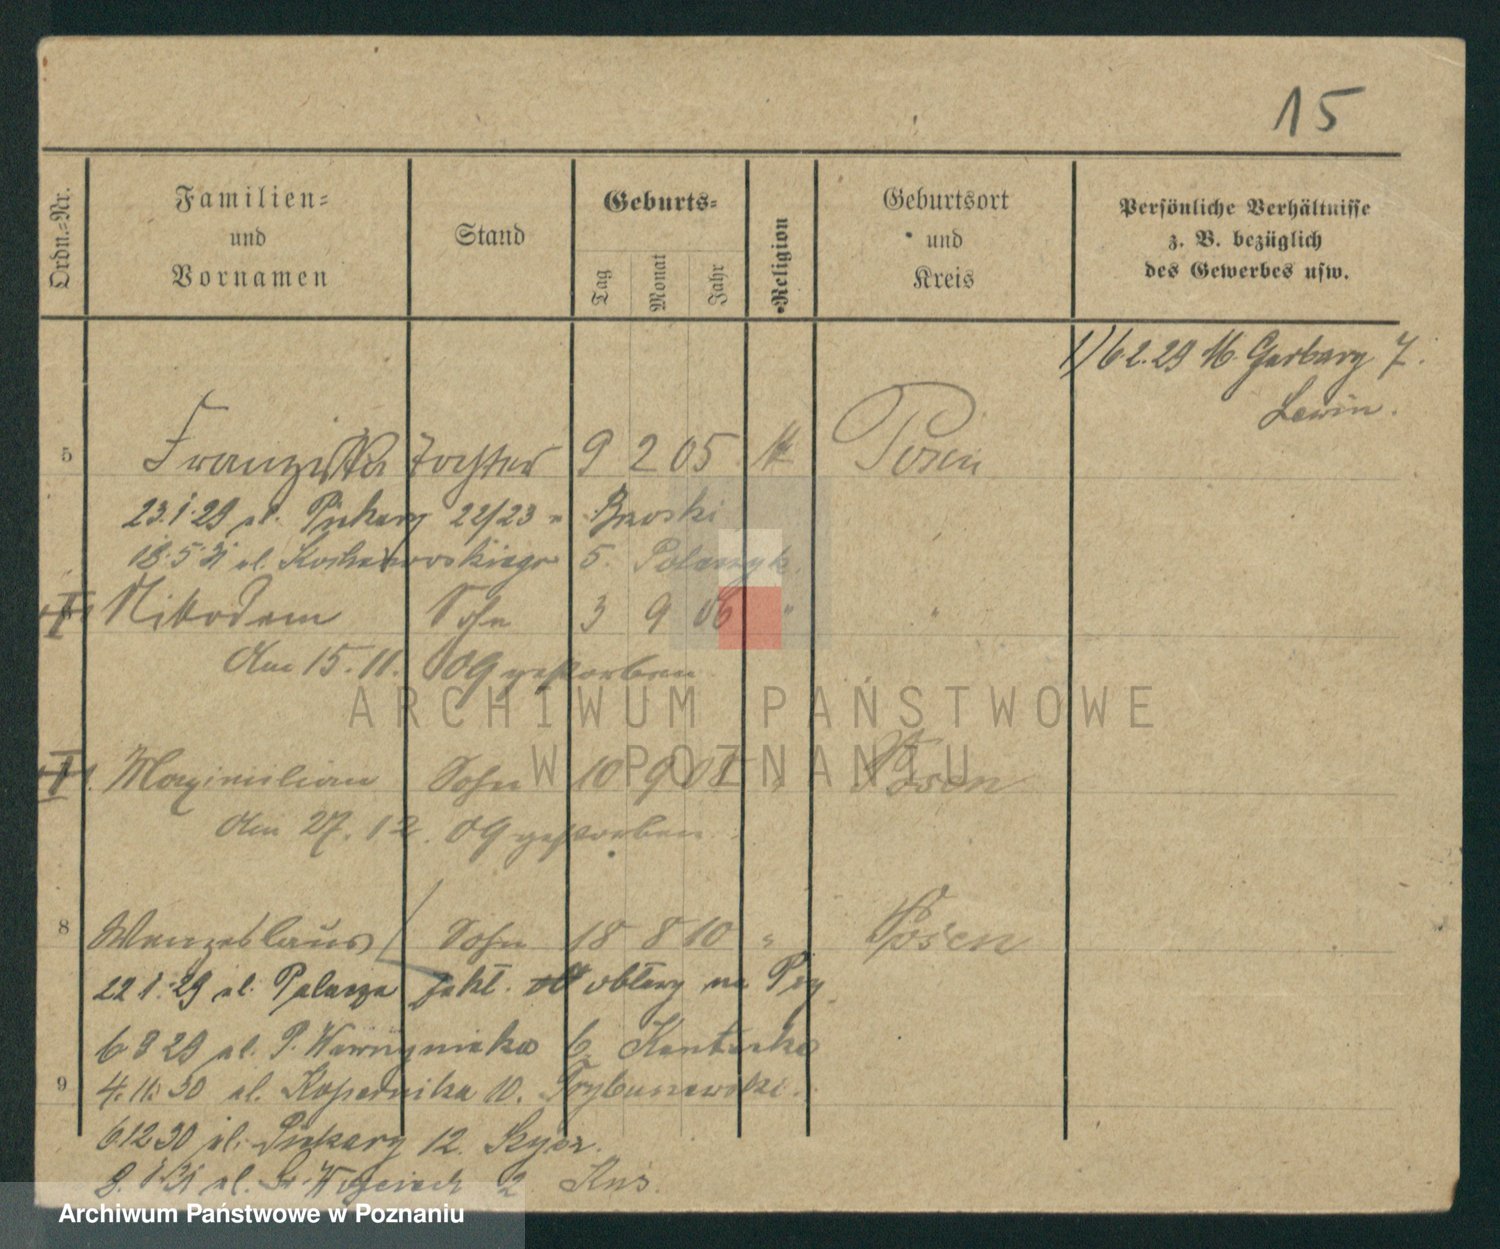 15
Ordn.=Nr.
Familien=
und
Vornamen
Stand
Geburts=
Tag
Monat
Jahr
Religion
Geburtsort
und
Kreis
Persönliche Verhältnisse
z. B. bezüglich
des Gewerbes usw.
1) 6 2. 29 W. Garbary 7.
Lewin.
5 Franziska Tochter 9 2 05 Posen
23.1.29 ul. Piekary 22/23 Brzoski
18.5.31 ul. 5.
Nikodem Sohn 3 9 06 " "
Am 15. 11. 09 gestorben
Maximilian Sohn 10 9 08 " Posen
Am 27. 12. 09 gestorben
8 Wenzeslaus Sohn 18 8 10 " Posen
22 1. 29 ul. na
6 8 29 ul. P. Wawrzyniaka 6.
9
4. 11. 30 ul. Kopernika 10. Trybuszewski.
6 12 30 ul. Piekary 12.
8. 1. 31 ul. Św. Wojciech 2
ARCHIWUM PAŃSTWOWE
W POZNANIU
Archiwum Państwowe w Poznaniu